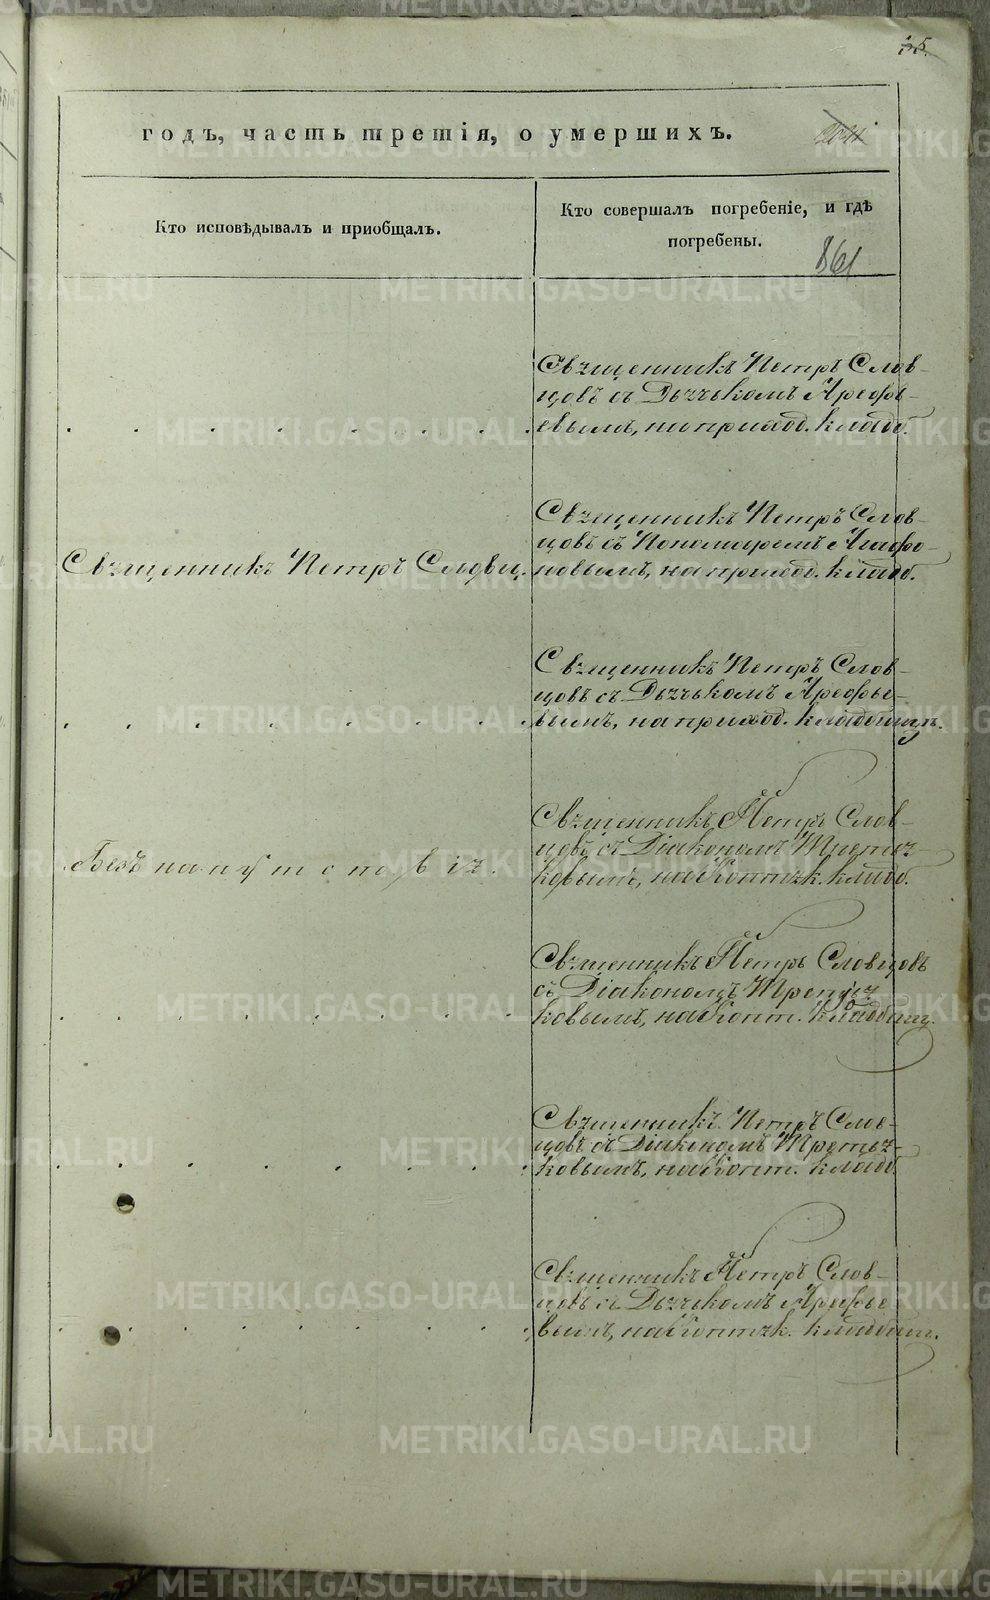 годъ, часть третія, о умершихъ.
Кто исповѣдывалъ и приобщалъ.
Кто совершалъ погребеніе, и гдѣ
погребены.
861
Священникъ Петръ Слов-
цовъ съ Дьячькомъ Арефь-
евымъ, на приход. кладб.
Священникъ Петръ Словц.
Священникъ Петръ Слов-
цовъ съ Пономаремъ
новымъ, на приход. кладб.
Священникъ Петръ Слов-
цовъ съ Дьячькомъ Арефье-
вымъ, на приход. кладбищѣ.
Безъ напутствія.
Священникъ Петръ Слов-
цовъ съ Діакономъ Третья-
ковымъ, на кладб.
Священникъ Петръ Словцовъ
съ Діакономъ Третья-
ковымъ, на Копт. кладбищ.
Священникъ Петръ Слов-
цовъ съ Діакономъ Третья-
ковымъ, на Копт. кладб.
Священникъ Петръ Слов-
цовъ съ Дьячькомъ Арефье-
вымъ, на кладбищ.
METRIKI.GASO-URAL.RU